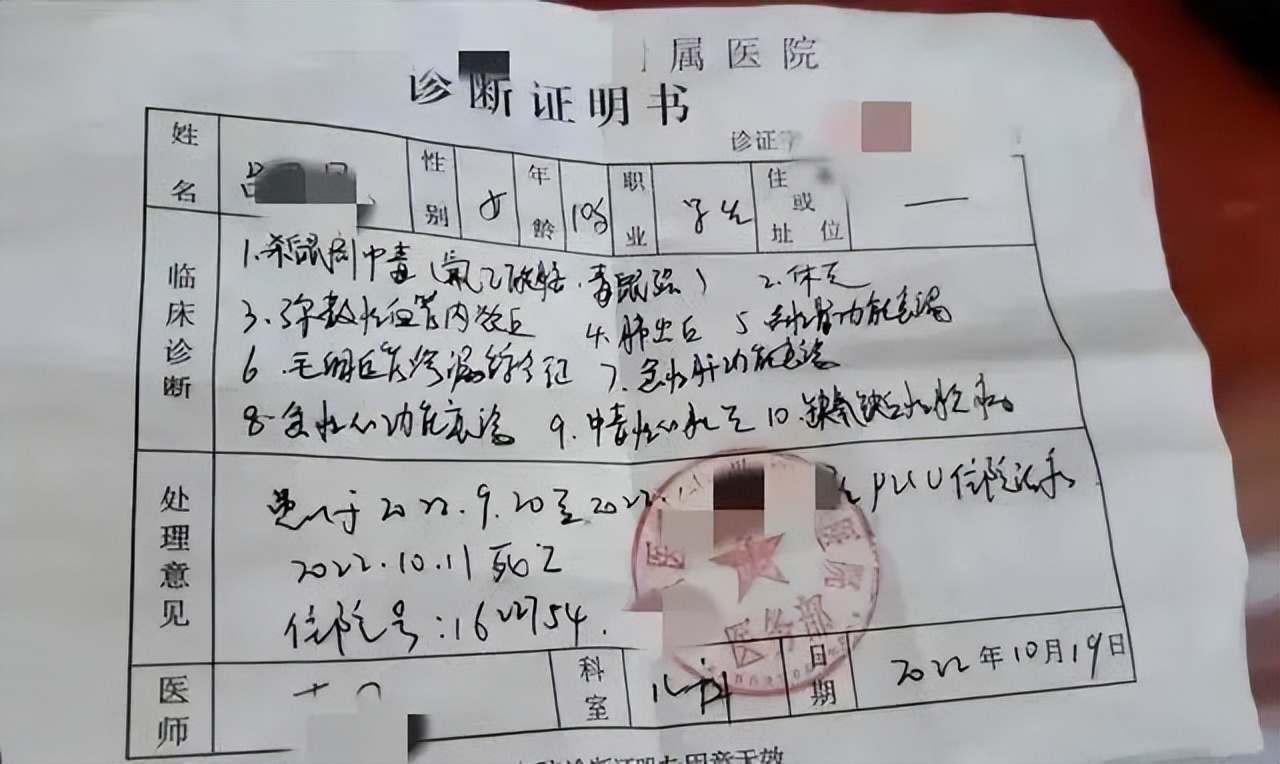 属医院
诊断证明书
诊证字
姓名 吕 性别 女 年龄 10岁 职业 学生 住址或位 一
临床诊断
1.杀鼠剂中毒(氟乙酰胺、毒鼠强) 2.休克
3、弥散性血管内凝血 4.肺出血 5.急性肾功能衰竭
6.毛细血管渗漏综合征 7.急性肝功能衰竭
8.急性心功能衰竭 9.中毒性心肌炎 10.缺氧缺血性脑病
处理意见
患儿于2022.9.20至2022. PICU住院治疗
2022.10.11死亡
住院号:1622754.
医务部
医师 科室 儿科 日期 2022年10月19日